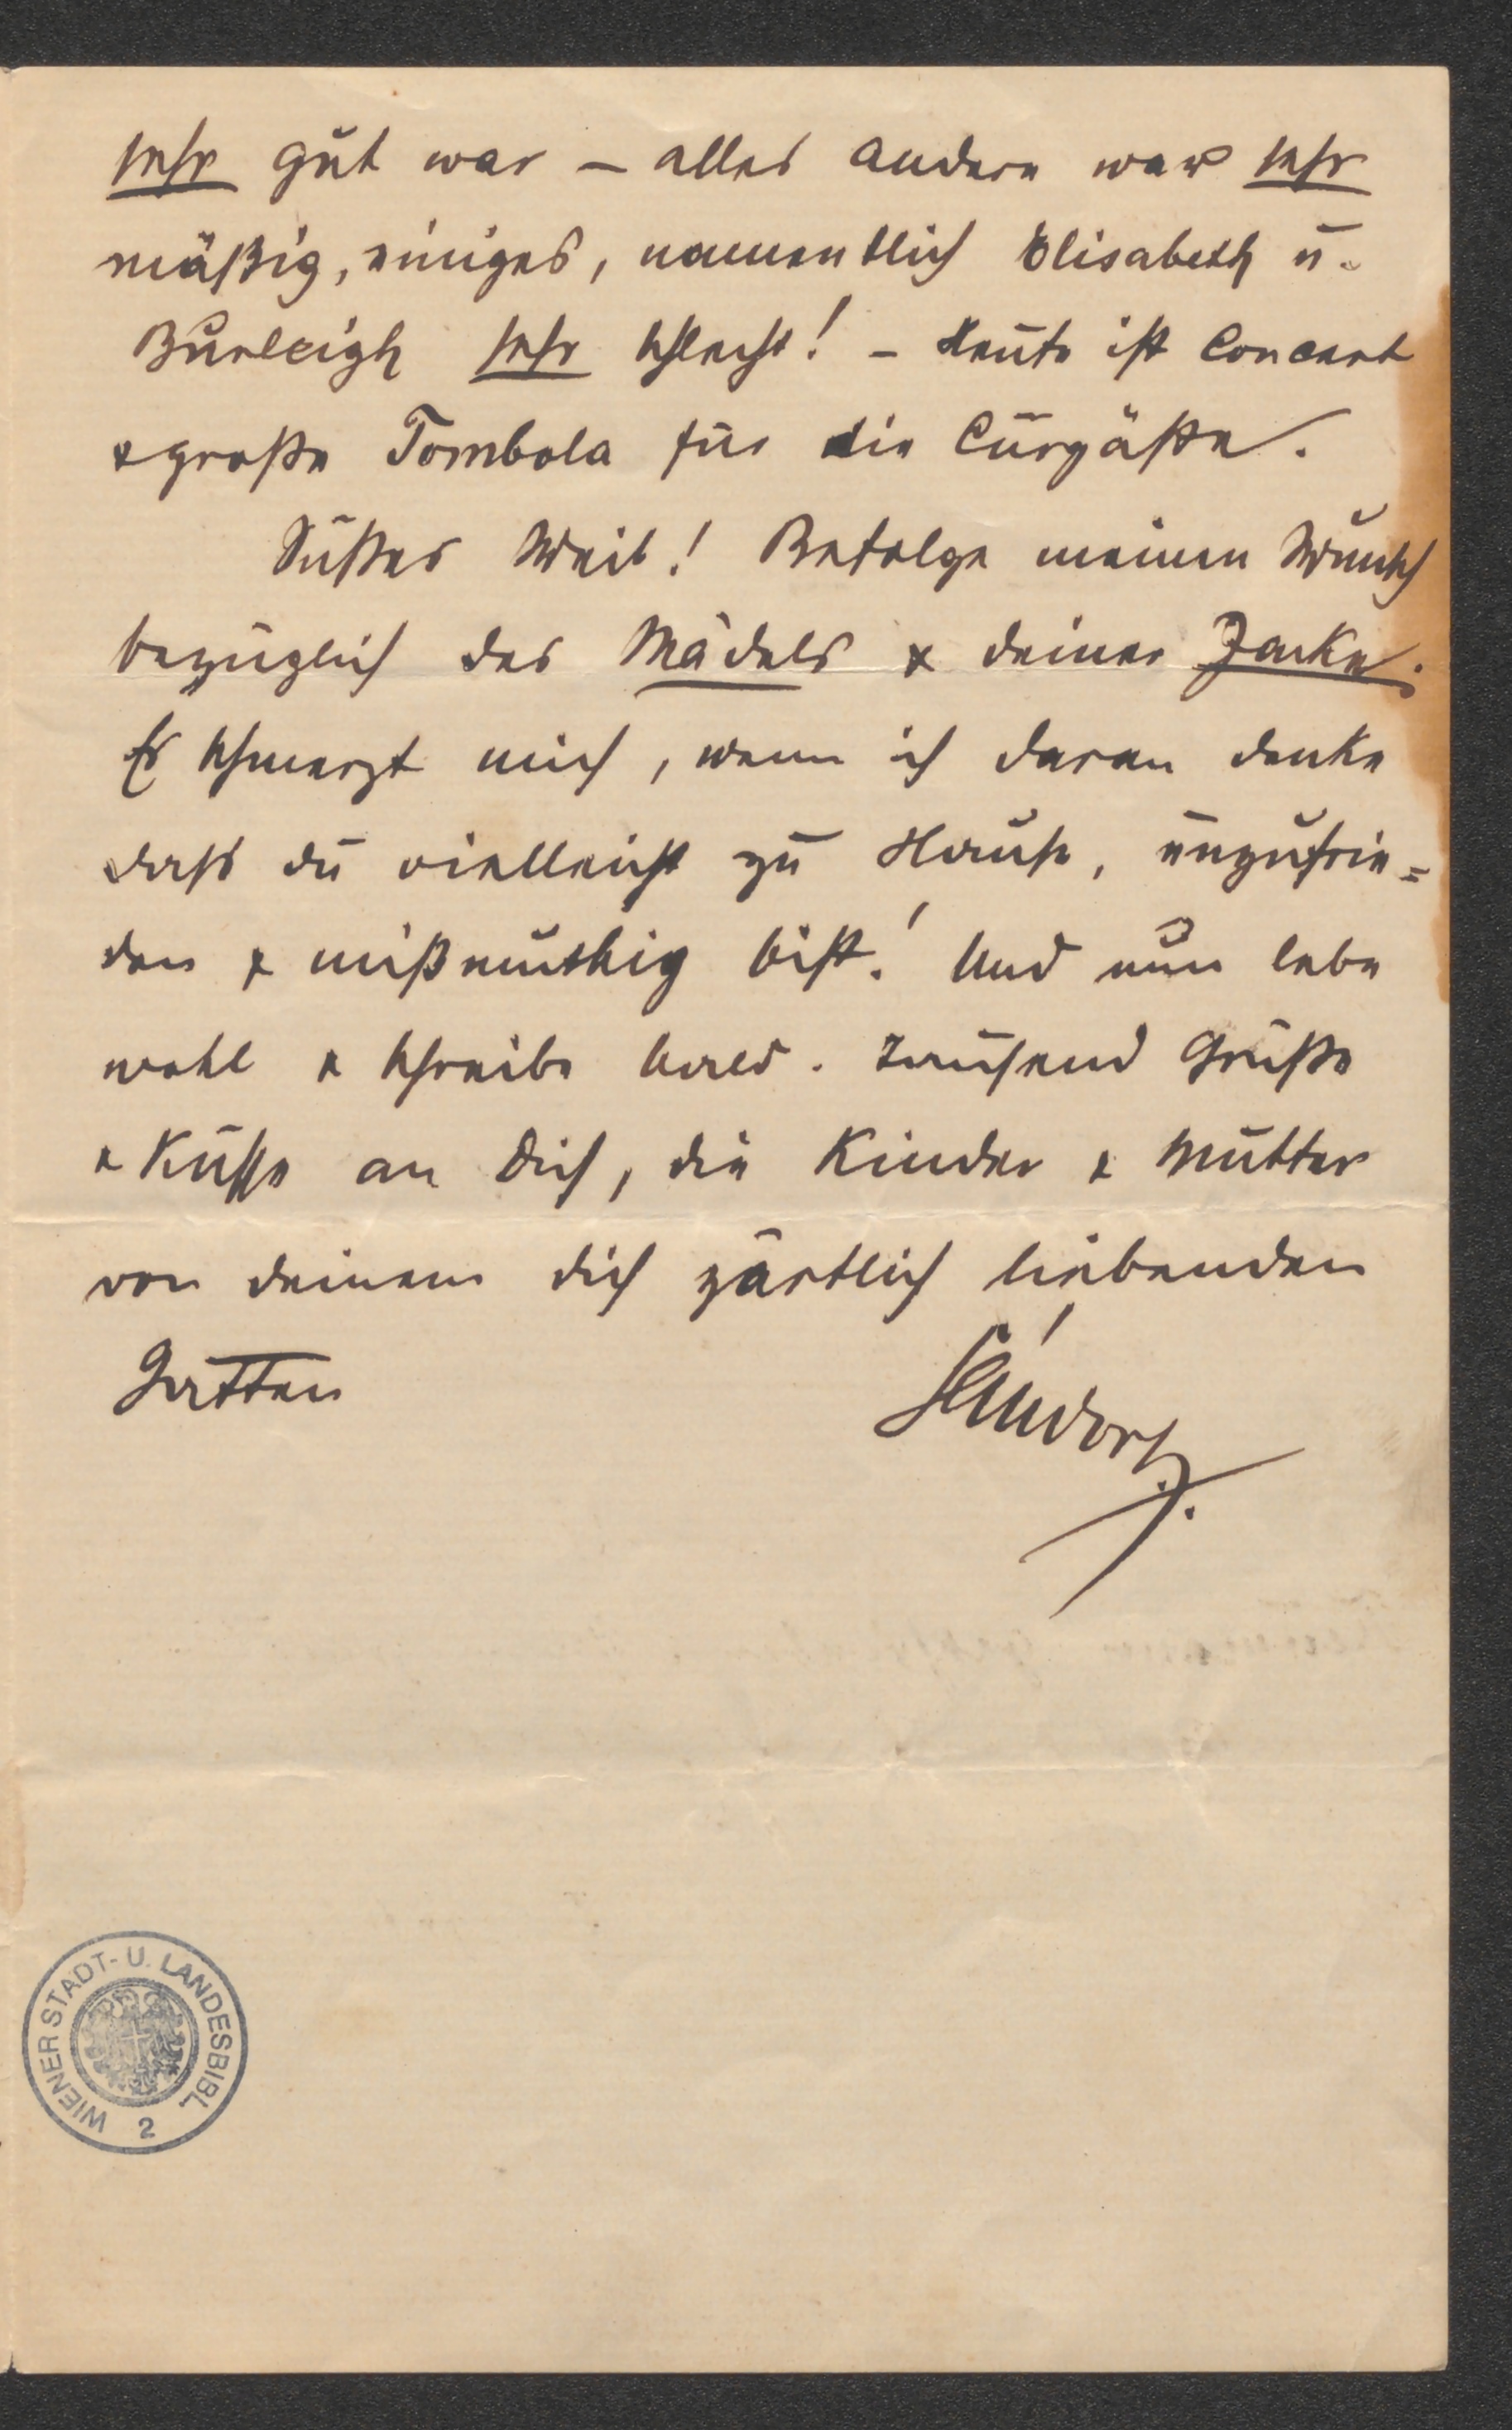 sehr gut war – alles andere war sehr
mäßig, einiges, namentlich Elisabeth u.
Burleigh sehr schlecht! – Heute ist Concert
& große Tombola für die Curgäste.
Süßes Weib! Befolge meinen Wunsch
bezüglich des Mädels & deiner Jacke.
Es schmerzt mich, wenn ich daran denke
dass du vielleicht zu Hause, unzufrie=
den & mißmuthig bist! Und nun lebe
wohl & schreibe bald. Tausend Grüße
& Küsse an Dich, die Kinder & Mutter
von deinem dich zärtlich liebenden
Gatten
Sándor
WIENER STADT- U. LANDESBIBL.
2